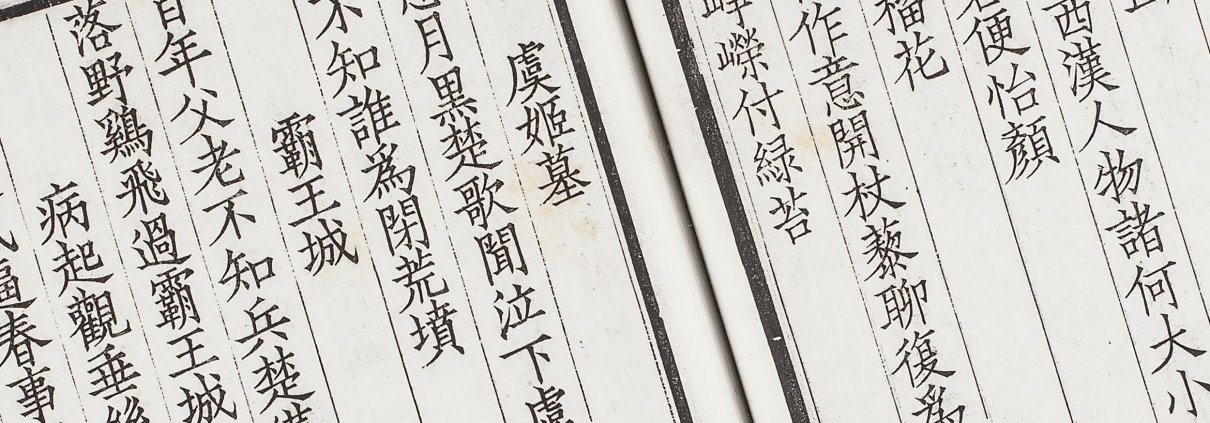 西漢人物諸何大小
便怡顏
花
作意開杖藜聊復爲
崢嶸付緑苔
虞姬墓
月黒楚歌聞泣下虞
不知誰為閉荒墳
霸王城
百年父老不知兵楚漢
落野鷄飛過霸王城
病起觀垂絲
逼春事